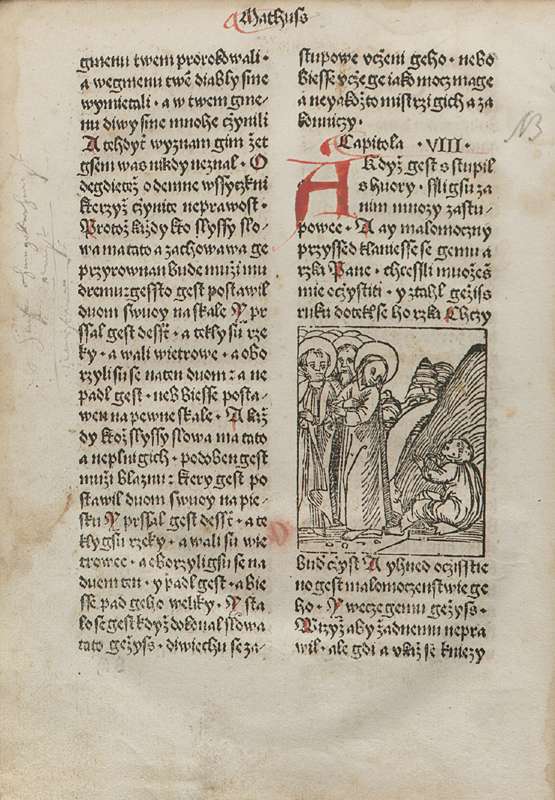 Mathuss
gmenu twem prorokowali ·
a wegmenu twē diabły sme
wymietali · a w twem gme-
nu diwy sme mnohe cżynili
A tehdyť wyznam gim żeť
gsem was nikdy neznal · O
degdietez odemne wssyckni
kterzyż cżynite neprawost ·
Protoż każdy kto slyssy slo-
wa ma tato a zachowawa ge
przyrownan bude mużi mu
dremu: gessto gest postawil
duom swuoy na skale · Y pr
ssal gest dessť · a tekly sü rze
ky · a wali wietrowe · a obo
rzyli su se na ten duom : a ne
padl gest · neb biesse posta-
wen na pewne skale · A każ
dy ktoż slyssy slowa ma tato
a neplni gich · podoben gest
muzi blaznu: ktery gest po
stawil duom swuoy na pie-
sku Y prssal gest dessť · a te
kly gsu rzeky · a wali sü wie
trowee · a oborzyli gsu se na
duom ten · y padl gest · a bie
sse pad geho weliky · Y sta
lo se gest kdyż dokonal slowa
tato geżyss · diwiechu se za-
stupowe vcżeni geho · nebo
biesse vcże ge iako moc mage
a ne yakożto mistrzi gich a za
konnicy ·
Capitola · VIII ·
A Kdyż gest s stupil
s huory · ssli gsu za
nim mnozy zastu-
powee · A ay malomocny
przyssed klaniesse se gemu a
rzka Pane · chcessli możeś
mie ocżystiti · y ztahl geżiss
ruku dotekl se ho rzka Chczy
bud cżyst A yhned ocżisstie
no gest malomocenstwie ge
ho · Y wece gemu geżyss ·
Wizyż aby żadnemu nepra
wil · ale gdi a vkaż se kniezy
NB